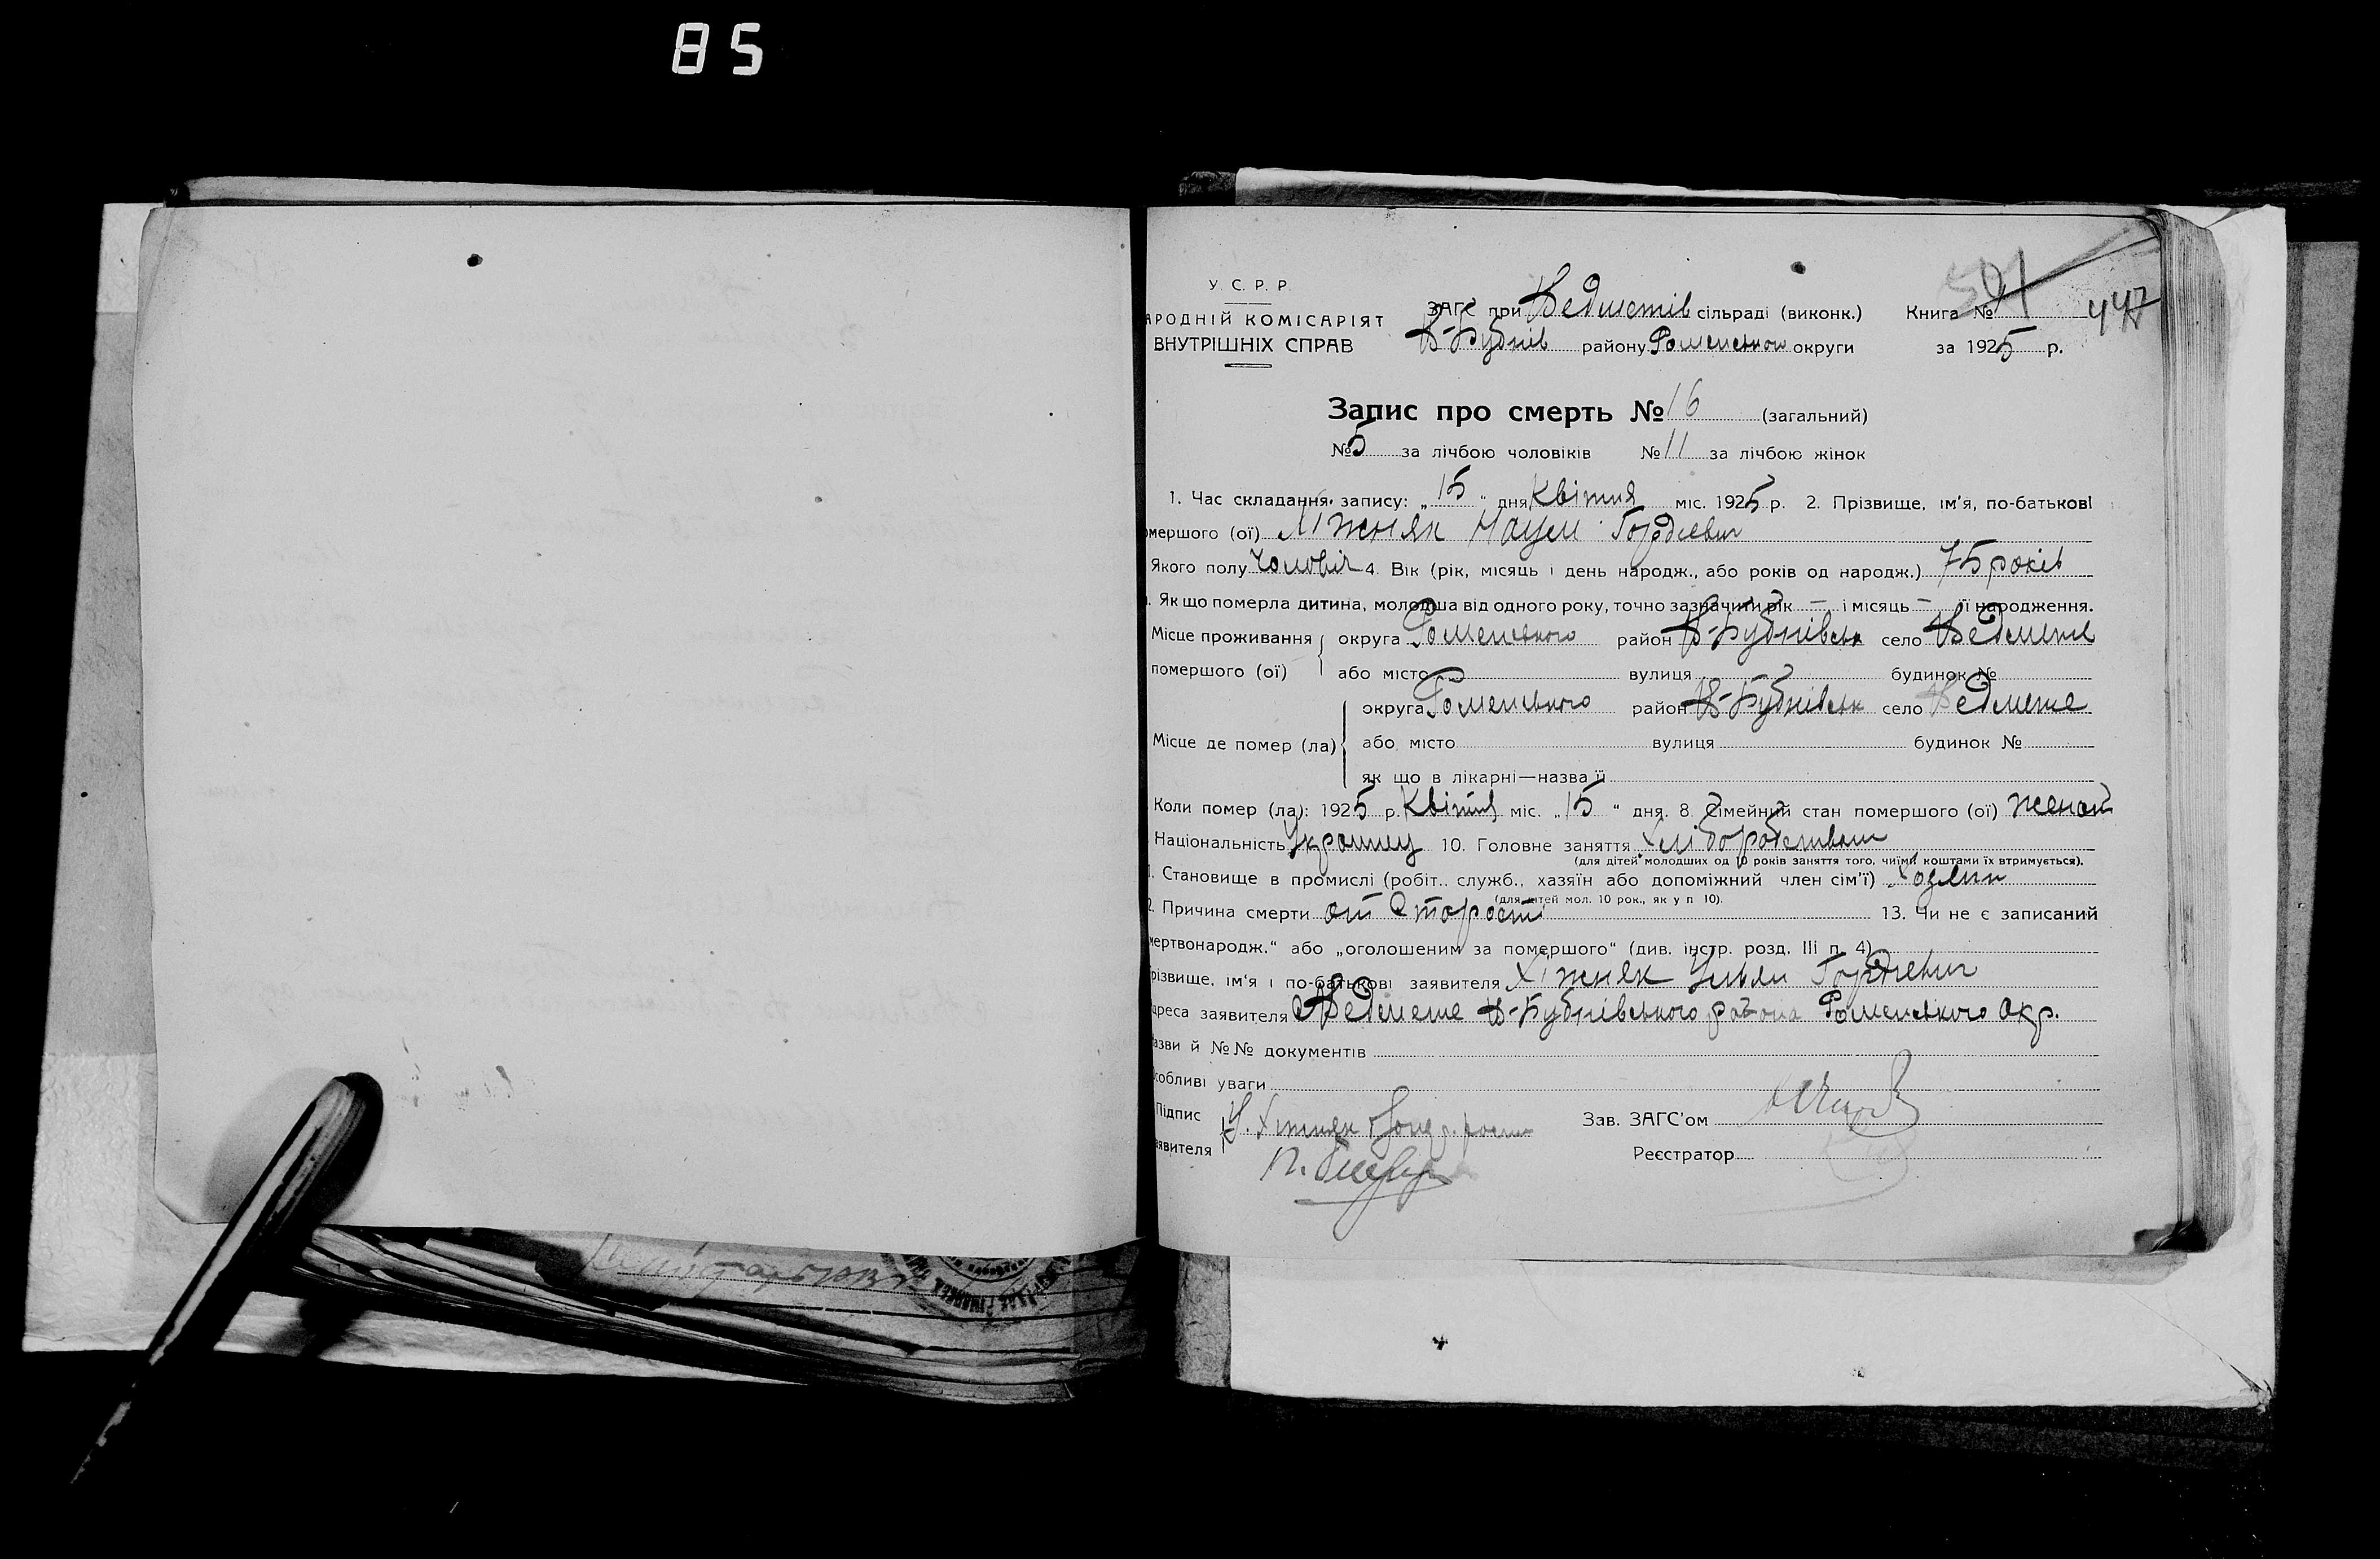 85
501
447
У. С. Р. Р.
АРОДНІЙ КОМІСАРІЯТ
ВНУТРІШНІХ СПРАВ
ЗАГС при Ведметів сільраді (виконк.) Книга №
В-Бубнів району Роменської округи за 1925 р.
Запис про смерть № 16 (загальний)
№ 5 за лічбою чоловіків № 11 за лічбою жінок
1. Час складання запису: „15" дня Квітня міс. 1925 р. 2. Прізвище, ім'я, по-батькові
мершого (ої) Хіжняк Наум Гордієвич
Якого полу Чоловіч 4. Вік (рік, місяць і день народж., або років од народж.) 75 років
. Як що померла дитина, молодша від одного року, точно зазначити рік — і місяць — її народження.
Місце проживання округа Роменського район В-Бубнівськ село Ведмеже
померого (ої) або місто вулиця будинок №
округа Роменського район В-Бубнівськ село Ведмеже
Місце де помер (ла) або місто вулиця будинок №
як що в лікарні—назва її
Коли помер (ла): 1925 р. Квітня міс. „15" дня. 8. Сімейний стан померлого (ої) женат
Національність Українец 10. Головне заняття Хліборобством
(для дітей молодших од 10 років заняття того, чиїми коштами їх втримується).
1. Становище в промислі (робіт., служб., хазяїн або допоміжний член сім'ї) Хазяин
(для дітей мол. 10 рок., як у п 10).
2. Причина смерти от Старости 13. Чи не є записаний
мертвонародж." або „оголошеним за померлого" (див. інстр. розд. III п. 4)
різвище, ім'я і по-батькові заявителя Хіжняк Ульян Гордієвич
дреса заявителя с Ведмеже В-Бубнівського района Роменського окр.
азви й №№ документів
собливі уваги
Підпис
аявителя У. Хіжняк
Зав. ЗАГС'ом
Реєстратор